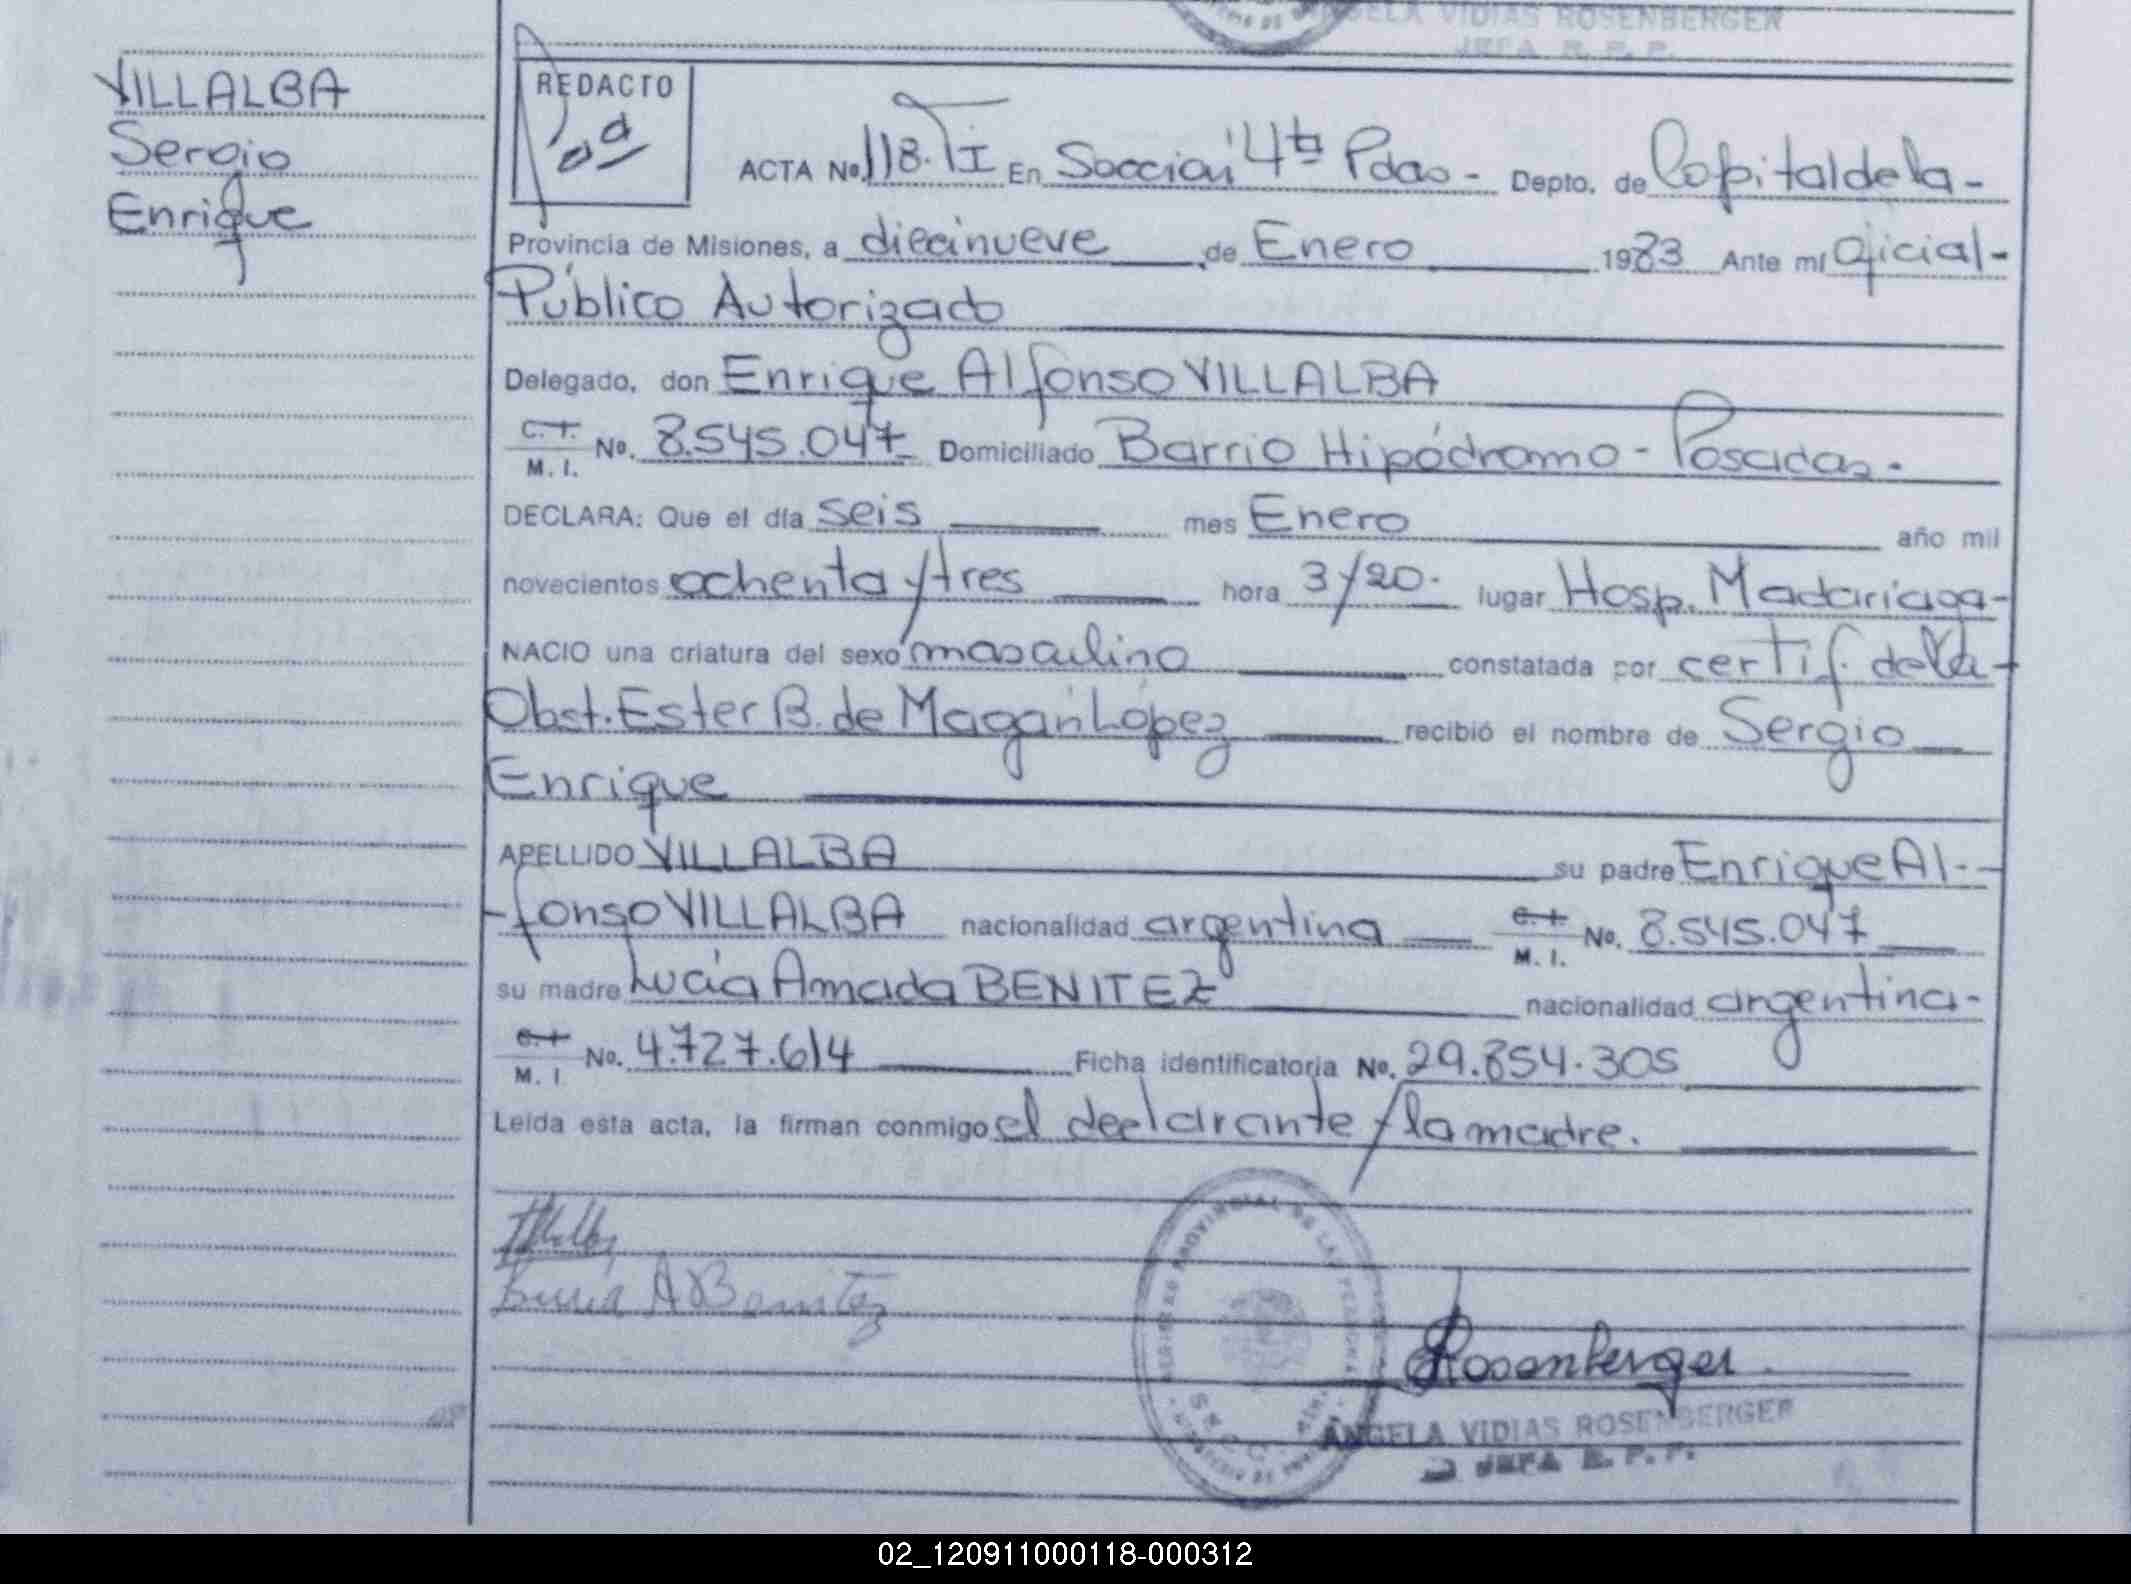 ANGELA VIDIAS ROSENBERGER
JEFA R. P. P.
VILLALBA
Sergio
Enrique
REDACTO
ACTA No. 118. TI En Sección 4ta Pdas - Depto. de Capital de la -
Provincia de Misiones, a diecinueve de Enero 1983 Ante mí Oficial -
Público Autorizado
Delegado, don Enrique Alfonso VILLALBA
C.I. M. I. No. 8.545.047 Domiciliado Barrio Hipódromo - Posadas.
DECLARA: Que el día seis mes Enero año mil
novecientos ochenta y tres hora 3/20. lugar Hosp. Madariaga -
NACIO una criatura del sexo masculino constatada por certif. de la -
Obst. Ester B. de Magán López recibió el nombre de Sergio
Enrique
APELLIDO VILLALBA su padre Enrique Al-
-fonso VILLALBA nacionalidad argentina C.I. M. I. No. 8.545.047
su madre Lucía Amada BENITEZ nacionalidad argentina -
C.I. M. I No. 4.727.614 Ficha identificatoria No. 29.854.305
Leída esta acta, la firman conmigo el declarante y la madre.
Lucía A Benitez
Rosenberger
ANGELA VIDIAS ROSENBERGER
JEFA R. P. P.
02_120911000118-000312